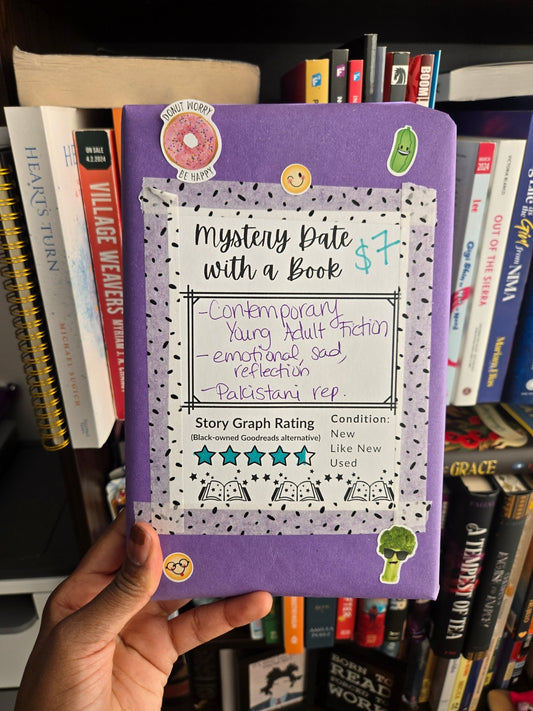 DONUT WORRY
BE HAPPY
Mystery Date
with a Book
$7
-Contemporary
Young Adult Fiction
-emotional, sad,
reflection
-Pakistani rep.
Story Graph Rating
(Black-owned Goodreads alternative)
Condition:
New
Like New
Used
HEART'S TURN
MICHAEL SUGICH
ON SALE
4.2.2024
VILLAGE WEAVERS
MYRIAM J. A. CHANCY
BOOM!
MARCH
2024
OUT OF THE SIERRA
the Girl from NMA
GRACE
A TEMPEST OF TEA
BORN TO
READ
FORCED TO
WORK